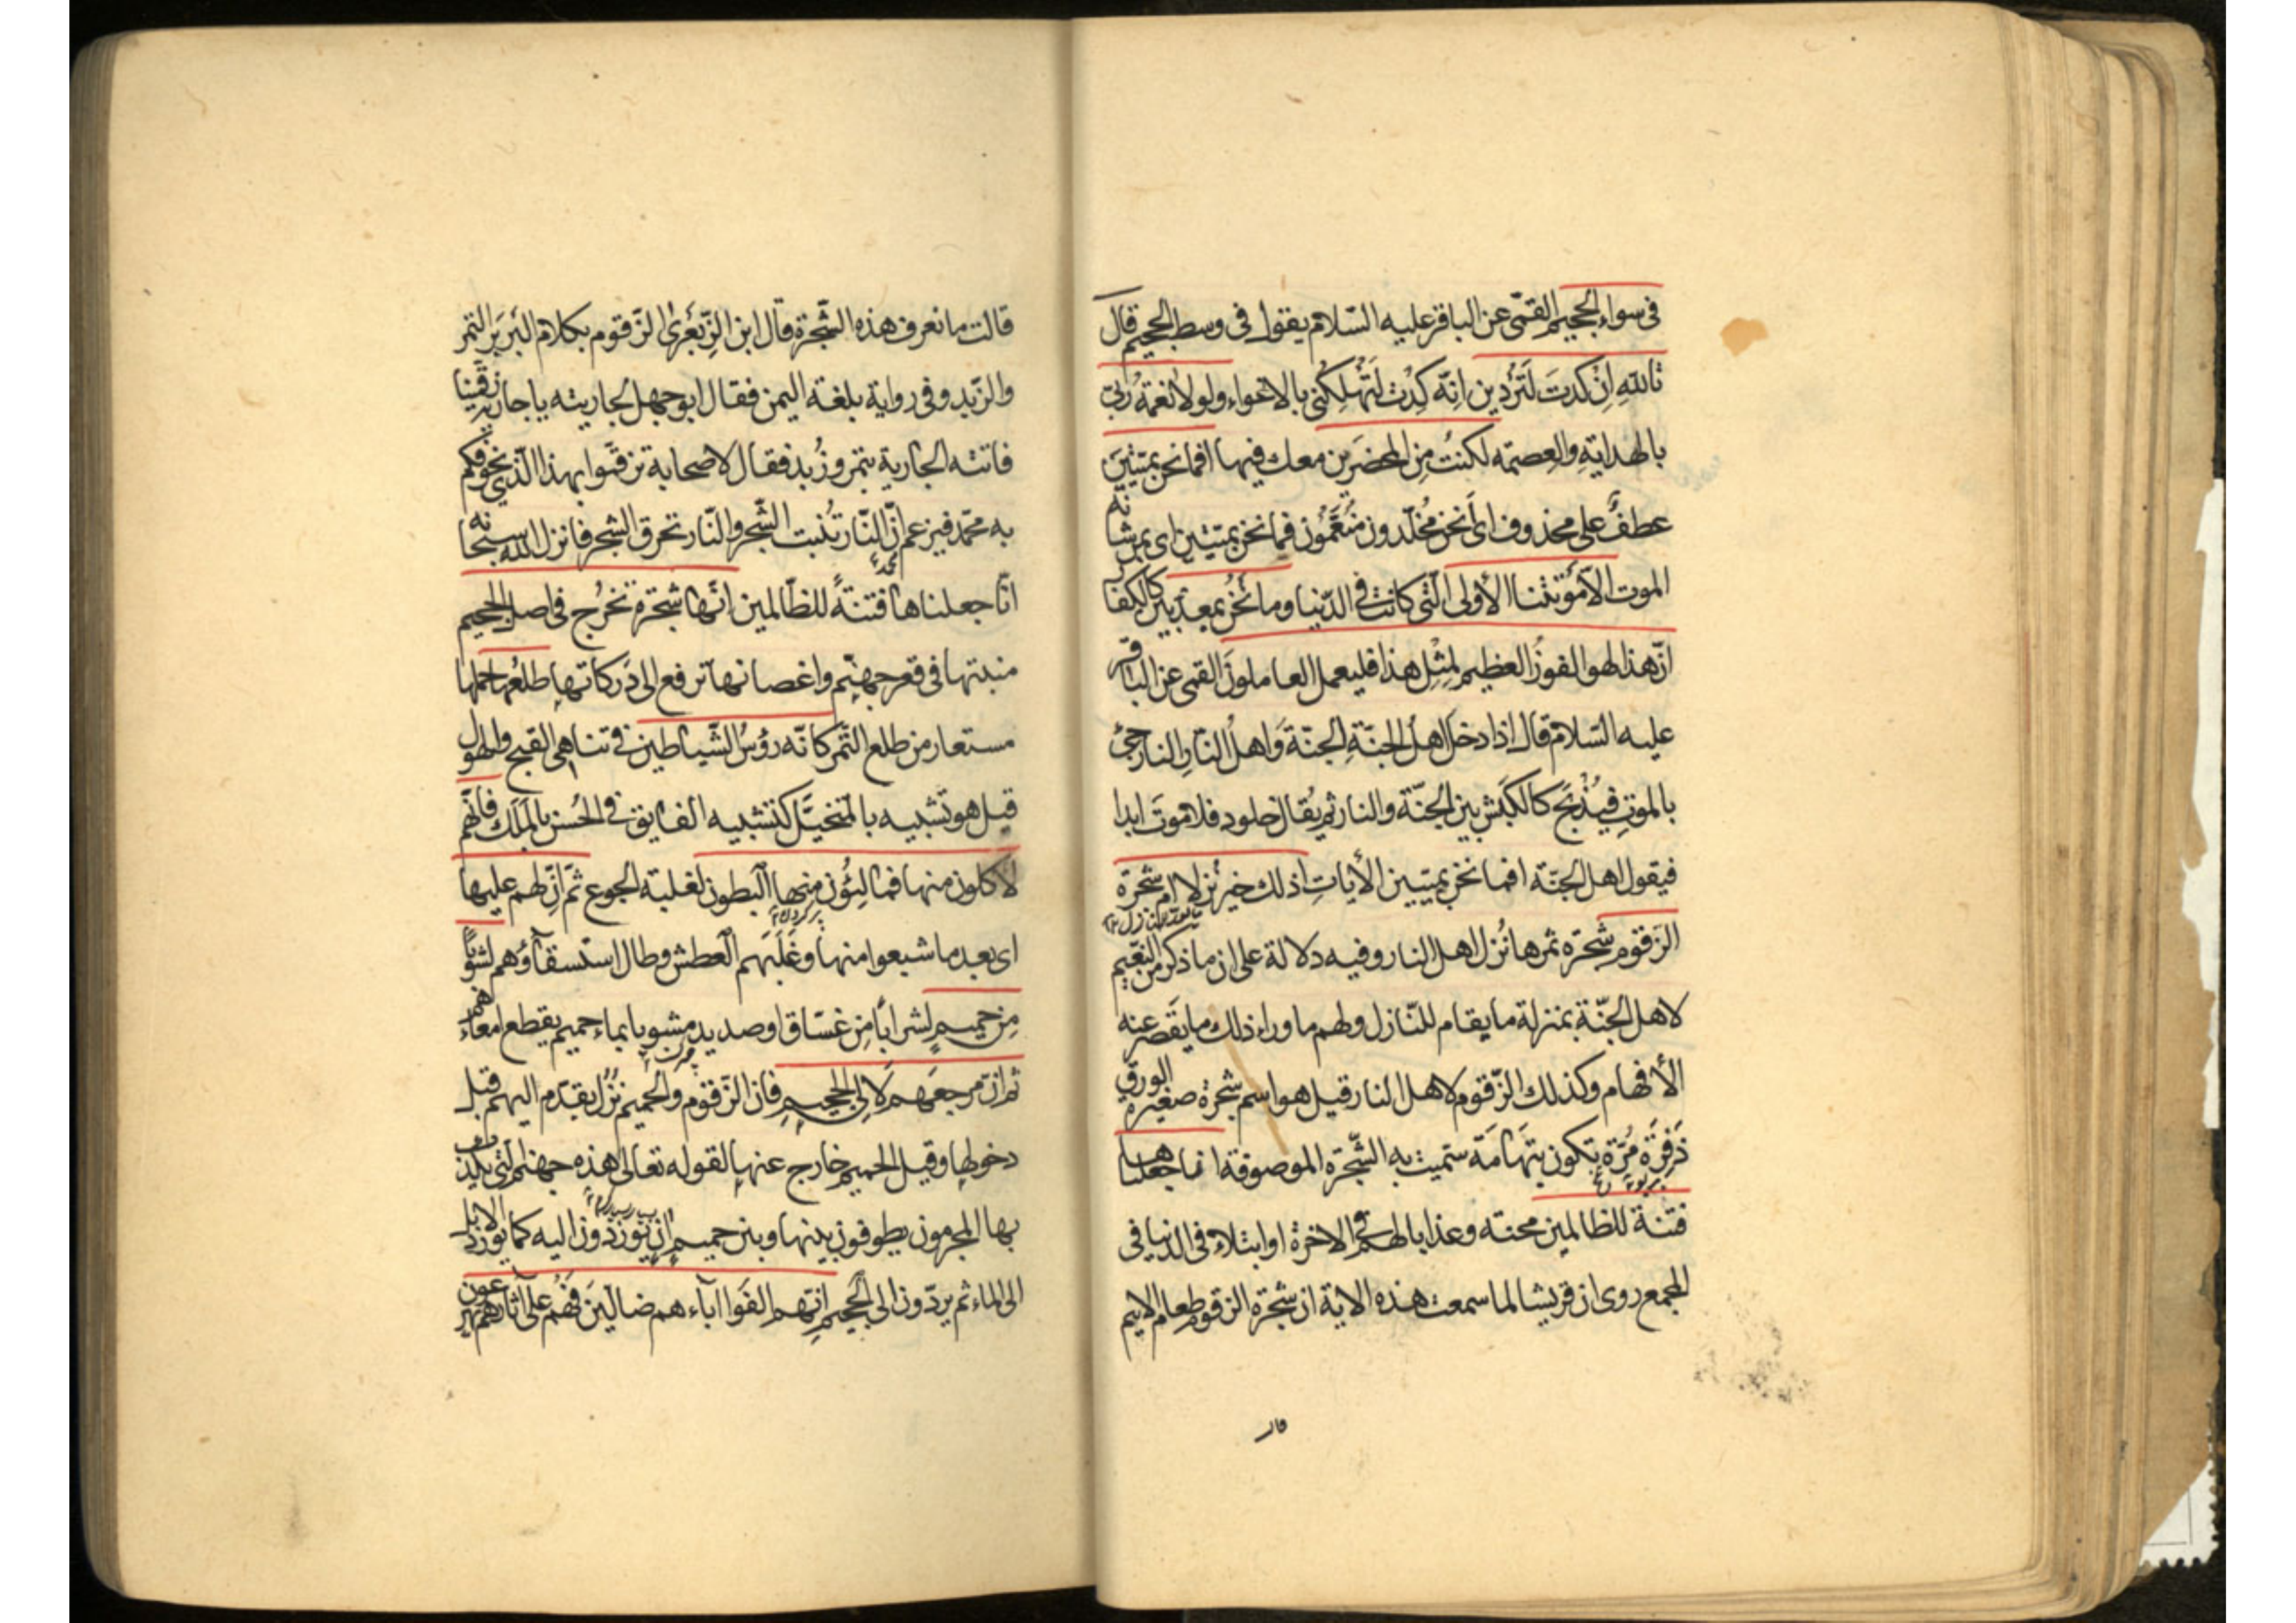 فى سواء الجحيم القمّى عن الباقر عليه السّلام يقول فى وسط الجحيم قال
تالله اِنْ كدتَ لَتُرْدين انّه كِدْت لَتُهْلِكُنى بالاغواء ولولا نعمةُ ربّى
بالهداية والعصمة لكنتُ مِنَ المحضَرين معك فيها افما نحن بميّتينَ
عطفٌ على محذوف اى أنحن مُخلّدون مُنَعَّمُون فما نحن بميّتين اى بمن شانه
الموت الّا مَوْتتنا الأولى الّتى كانت فى الدّنيا وما نَحْنُ بمعذّبين كالكفار
انّ هذا لهو الفوزُ العظيم لِمِثْلِ هذا فليعمل العاملونَ القمى عن الباقر
عليه السّلام قال اذا دخل اهلُ الجنّةِ الجنّةَ وَاهلُ النّارِ النار جئ
بالموتِ فيُذْبَح كالكَبَش بين الجنّة والنار ثم يُقال خلود فلا موتَ ابدا
فيقول اهل الجنّة افما نحن بميّتين الأياتِ اذلك خير نُزلا ام شجرة
الزقوم شجرة ثمرها نُزل اهل النار وفيه دلالة على ان ما ذكر من النّعيم
لاهل الجنّة بمنزلة ما يقام للنّازل ولهم ما وراء ذلك ما يقصر عنه
الأفهام وكذلك الزّقوم لاهل النار قيل هو اسم شجرة صغيرة الورق
ذَفِرَة مُرّة تكون بتَهَامَة سمّيت به الشّجرة الموصوفة انا جعلناها
فتنة للظالمين محنته وعذابا لهم فى الاخرة او ابتلاء فى الدنيا فى
المجمع روى ان قريشا لما سمعت هذه الاية ان شجرة الزقوم طعام الاثيم
قالت
قالت ما نعرف هذه الشّجرة قال ابن الزِّبَعْرى الزّقوم بكلام البَربَر التمر
والزّبد وفى رواية بلغة اليمن فقال ابو جهل لجاريته يا جارية زقّمينا
فاتته الجارية بتمر وزُبد فقال لاصحابه تزقّموا بهذا الّذى يخوّفكم
به محمّد فيزعم انّ النّار تُنبت الشّجر والنّار تحرق الشجر فانزل الله سبحانه
انّا جعلناها فتنةً للظّالمين انّها شجرة تخرُج فى اصل الجحيم
منبتها فى قعر جهنّم واغصانها ترفع الى دَركاتها طلعُها حملها
مستعار من طلع التّمر كانّه رؤسُ الشّياطين فى تناهى القبح والهول
قيل هو تشبيه بالمتخيَّل كتشبيه الفايق فى الحُسن بالمَلَك فانّهم
لأكلون منها فمالِئُون منها البطون لغلبة الجوع ثمّ انّ لهم عليها
اى بعد ما شبعوا منها وغَلَبَهم العطش وطال استسقآؤهم لشوباً
مِن حميمٍ لشراباً مِن غسّاق او صديد مشوبا بماء حميم يقطع امعاءهم
ثم انّ مرجعَهم لَالى الجحيم فان الزّقوم والحميم نُزُل يقدّم اليهم قبل
دخولها وقيل الحميم خارج عنها لقوله تعالى هذه جهنم الّتى يكذب
بها المجرمون يطوفون بينها وبين حميم ان يُورَدُون اليه كما يورد الابل
الى الماء ثم يردّون الى الجحيم انّهم الفَوا آباءهم ضالّين فَهُم على آثارهم يهرعون